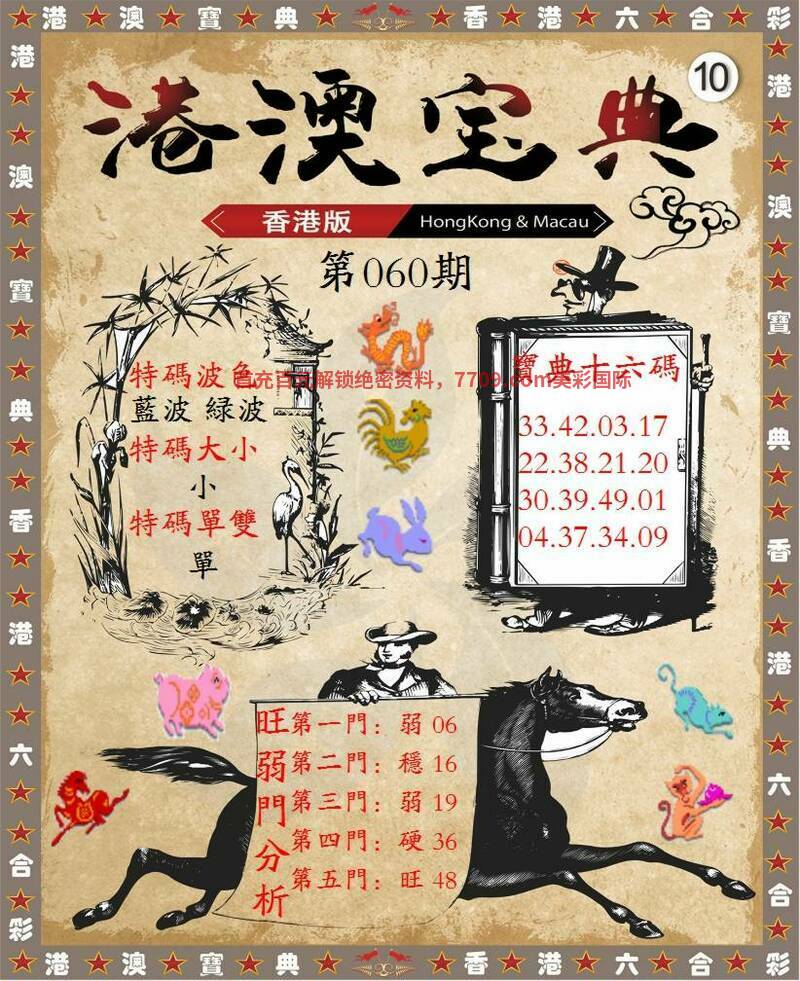 港澳寶典
香港六合彩
港澳寶典香港六合彩
港澳寶典香港六合彩
港澳宝典
10
香港版
HongKong & Macau
第060期
特碼波色
藍波 緑波
特碼大小
小
特碼單雙
單
寶典十六碼
33.42.03.17
22.38.21.20
30.39.49.01
04.37.34.09
首充百元解锁绝密资料，7709.com奖彩国际
旺弱門分析
第一門：弱 06
第二門：穩 16
第三門：弱 19
第四門：硬 36
第五門：旺 48
港澳寶典
香港六合彩